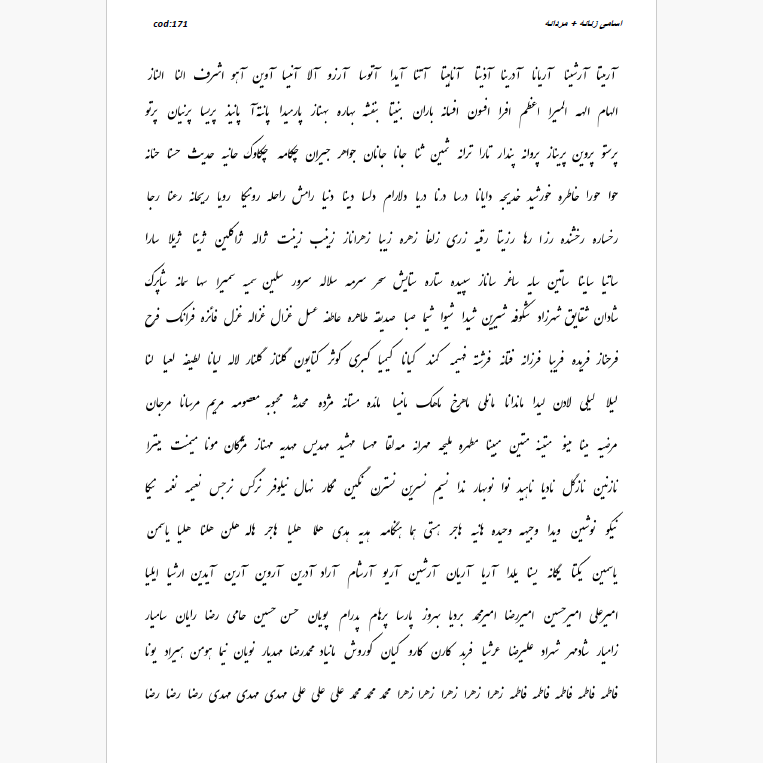 اسامی زنانه + مردانه
cod:171
آرمیتا آرشینا آریانا آدرینا آذیتا آناهیتا آتنا آیدا آتوسا آرزو آلا آنیسا آوین آهو اشرف النا الناز
الهام الهه المیرا اعظم افرا افسون افسانه باران بنیتا بنفشه بهاره بهناز پارمیدا پانته‌آ پانیذ پریسا پرنیان پرتو
پرستو پروین پریناز پروانه پندار تارا ترانه ثمین ثنا جانا جانان جواهر جیران چکامه چکاوک حانیه حدیث حسنا حنانه
حوا حورا خاطره خورشید خدیجه دایانا درسا درنا دریا دلارام دلسا دینا دنیا رامش راحله رونیکا رویا ریحانه رعنا رجا
رخساره رخشنده رزا رها رزیتا رقیه زری زلفا زهره زیبا زهراناز زینب زینت ژاله ژاکلین ژینا ژیلا سارا
ساتیا ساینا ساتین سایه ساغر ساناز سپیده ستاره ستایش سحر سرمه سلاله سرور سلین سمیه سمیرا سها سمانه شاپرک
شادان شقایق شهرزاد شکوفه شیرین شیدا شیوا شیما صبا صدیقه طاهره عاطفه عسل غزال غزاله غزل فائزه فرانک فرح
فرحناز فریده فریبا فرزانه فتانه فرشته فهیمه کمند کیانا کیمیا کبری کوثر کتایون گلناز گلنار لاله لیانا لطیفه لعیا لنا
لیلا لیلی لادن لیدا ماندانا مانلی ماهرخ ماهک مانیسا مائده مستانه مژده محدثه محبوبه معصومه مریم مرسانا مرجان
مرضیه مینا مینو متینه متین مبینا مطهره ملیحه مهرانه مه‌لقا مهسا مهشید مهدیس مهدیه مهناز مژگان مونا میمنت میترا
نازنین نازگل نادیا ناهید نوا نوبهار ندا نسیم نسرین نسترن نگین نگار نهال نیلوفر نرگس نرجس نعیمه نغمه نیکا
نیکو نوشین ویدا وجیهه وحیده هانیه هاجر هستی هما هنگامه هدیه هدی هلا هلیا هاجر هاله هلن هلنا هلیا یاسمن
یاسمین یکتا یگانه یسنا یلدا آریا آریان آرشین آریو آرشام آراد آدرین آروین آرین آیدین ارشیا ایلیا
امیرعلی امیرحسین امیررضا امیرمحمد بردیا بهروز پارسا پرهام پدرام پویان حسن حسین حامی رضا رایان سامیار
زامیار شادمهر شهراد علیرضا عرشیا فربد کارن کارو کیان کوروش مانیاد محمدرضا مهدیار نویان نیما هومن هیراد یونا
فاطمه فاطمه فاطمه فاطمه فاطمه زهرا زهرا زهرا زهرا زهرا محمد محمد محمد علی علی علی مهدی مهدی مهدی رضا رضا رضا